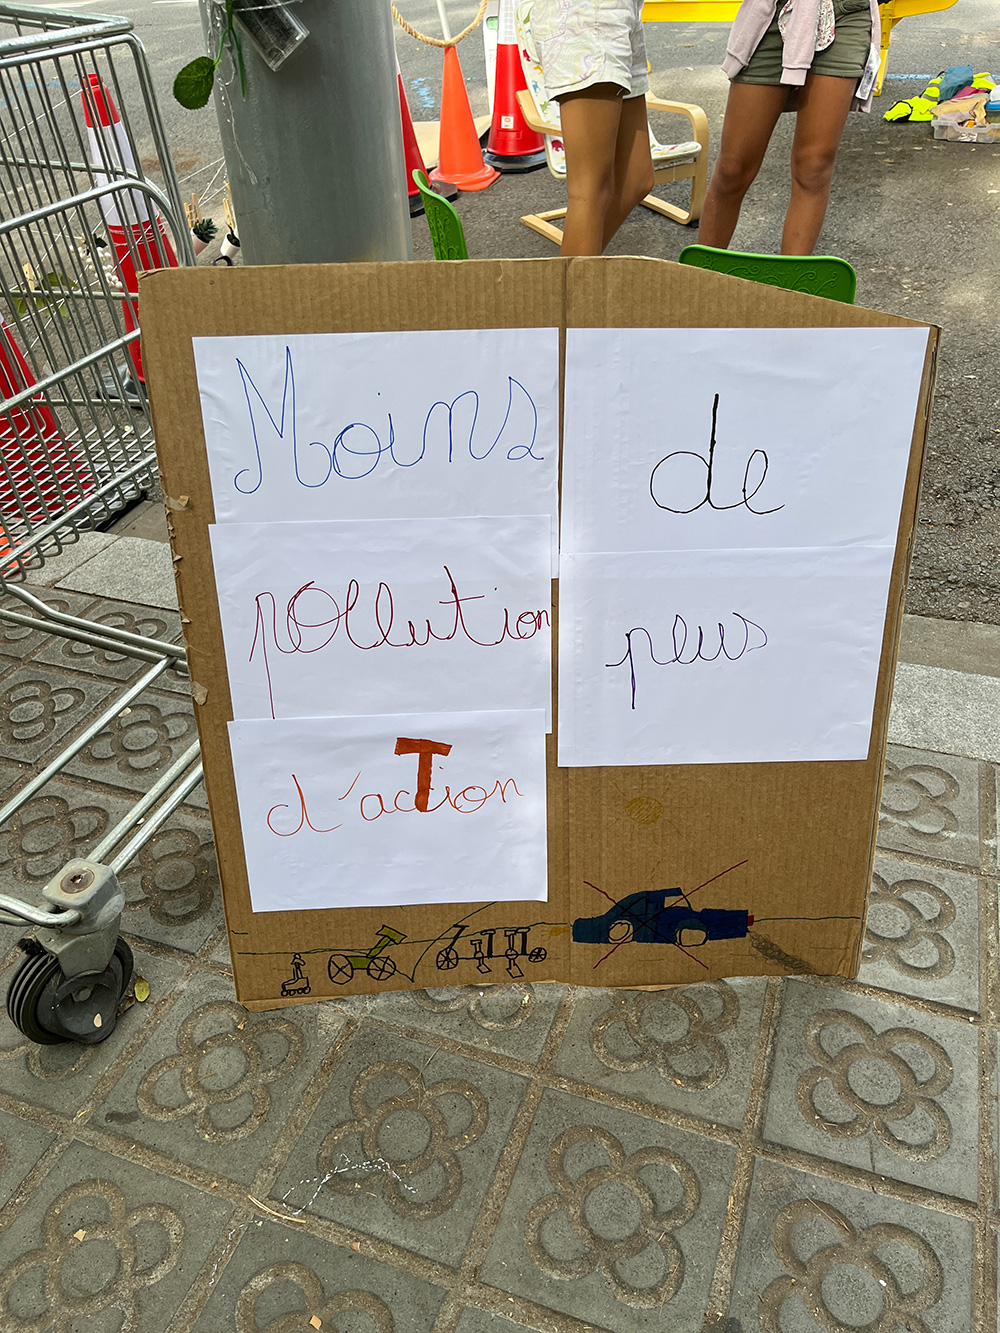 Moins de
pollution plus
d'acTion